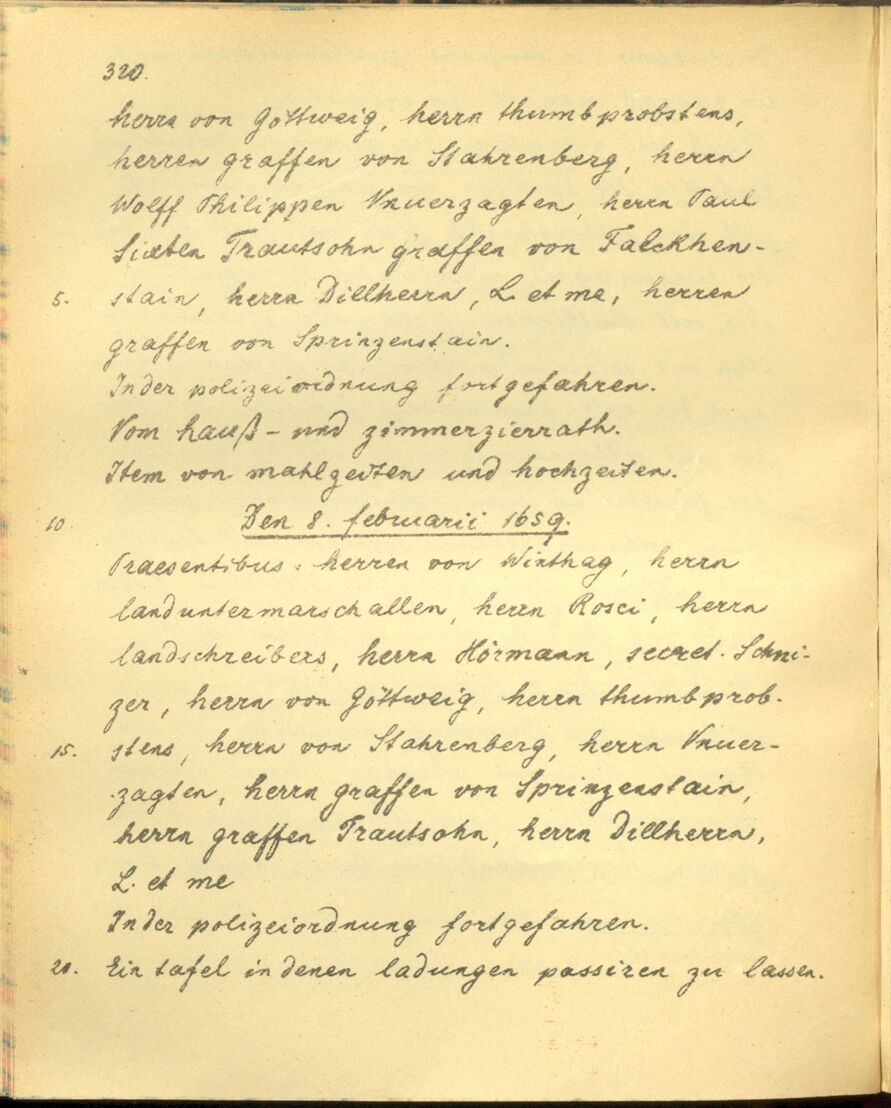 320.
herrn von Göttweig, herrn thumbprobstens,
herren graffen von Stahrenberg, herrn
Wolff Philippen Vnuerzagten, herrn Paul
Sixten Trautsohn graffen von Falckhen-
5. stain, herrn Dillherrn, L. et me, herren
graffen von Sprinzenstain.
In der polizeiordnung fortgefahren.
Vom hauß- und zimmerzierrath.
Item von mahlzeiten und hochzeiten.
10. Den 8. februarii 1659.
Praesentibus: herren von Winthag, herrn
landuntermarschallen, herrn Rosci, herrn
landschreibers, herrn Hörmann, secret. Schni-
zer, herrn von Göttweig, herrn thumbprob-
15. stens, herrn von Stahrenberg, herrn Vnuer-
zagten, herrn graffen von Sprinzenstain,
herrn graffen Trautsohn, herrn Dillherrn,
L. et me
In der polizeiordnung fortgefahren.
20. Ein tafel in denen ladungen passiren zu lassen.